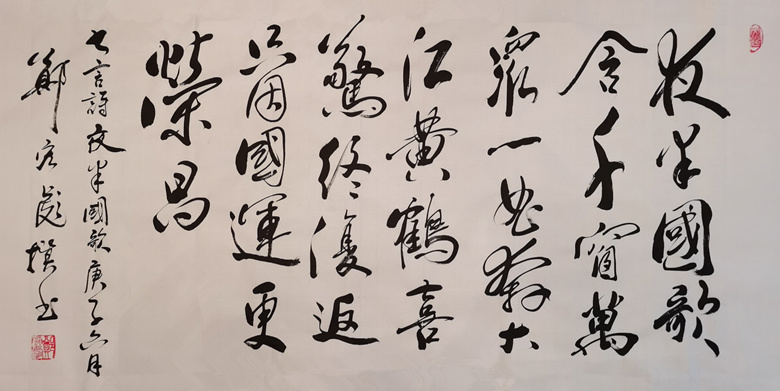 夜半國歌
含千窗萬
眾一奔大
江黃鶴喜
驚終復返
只因國運更
榮昌
七言詩夜半國歌庚子六月
鄭彪撰书